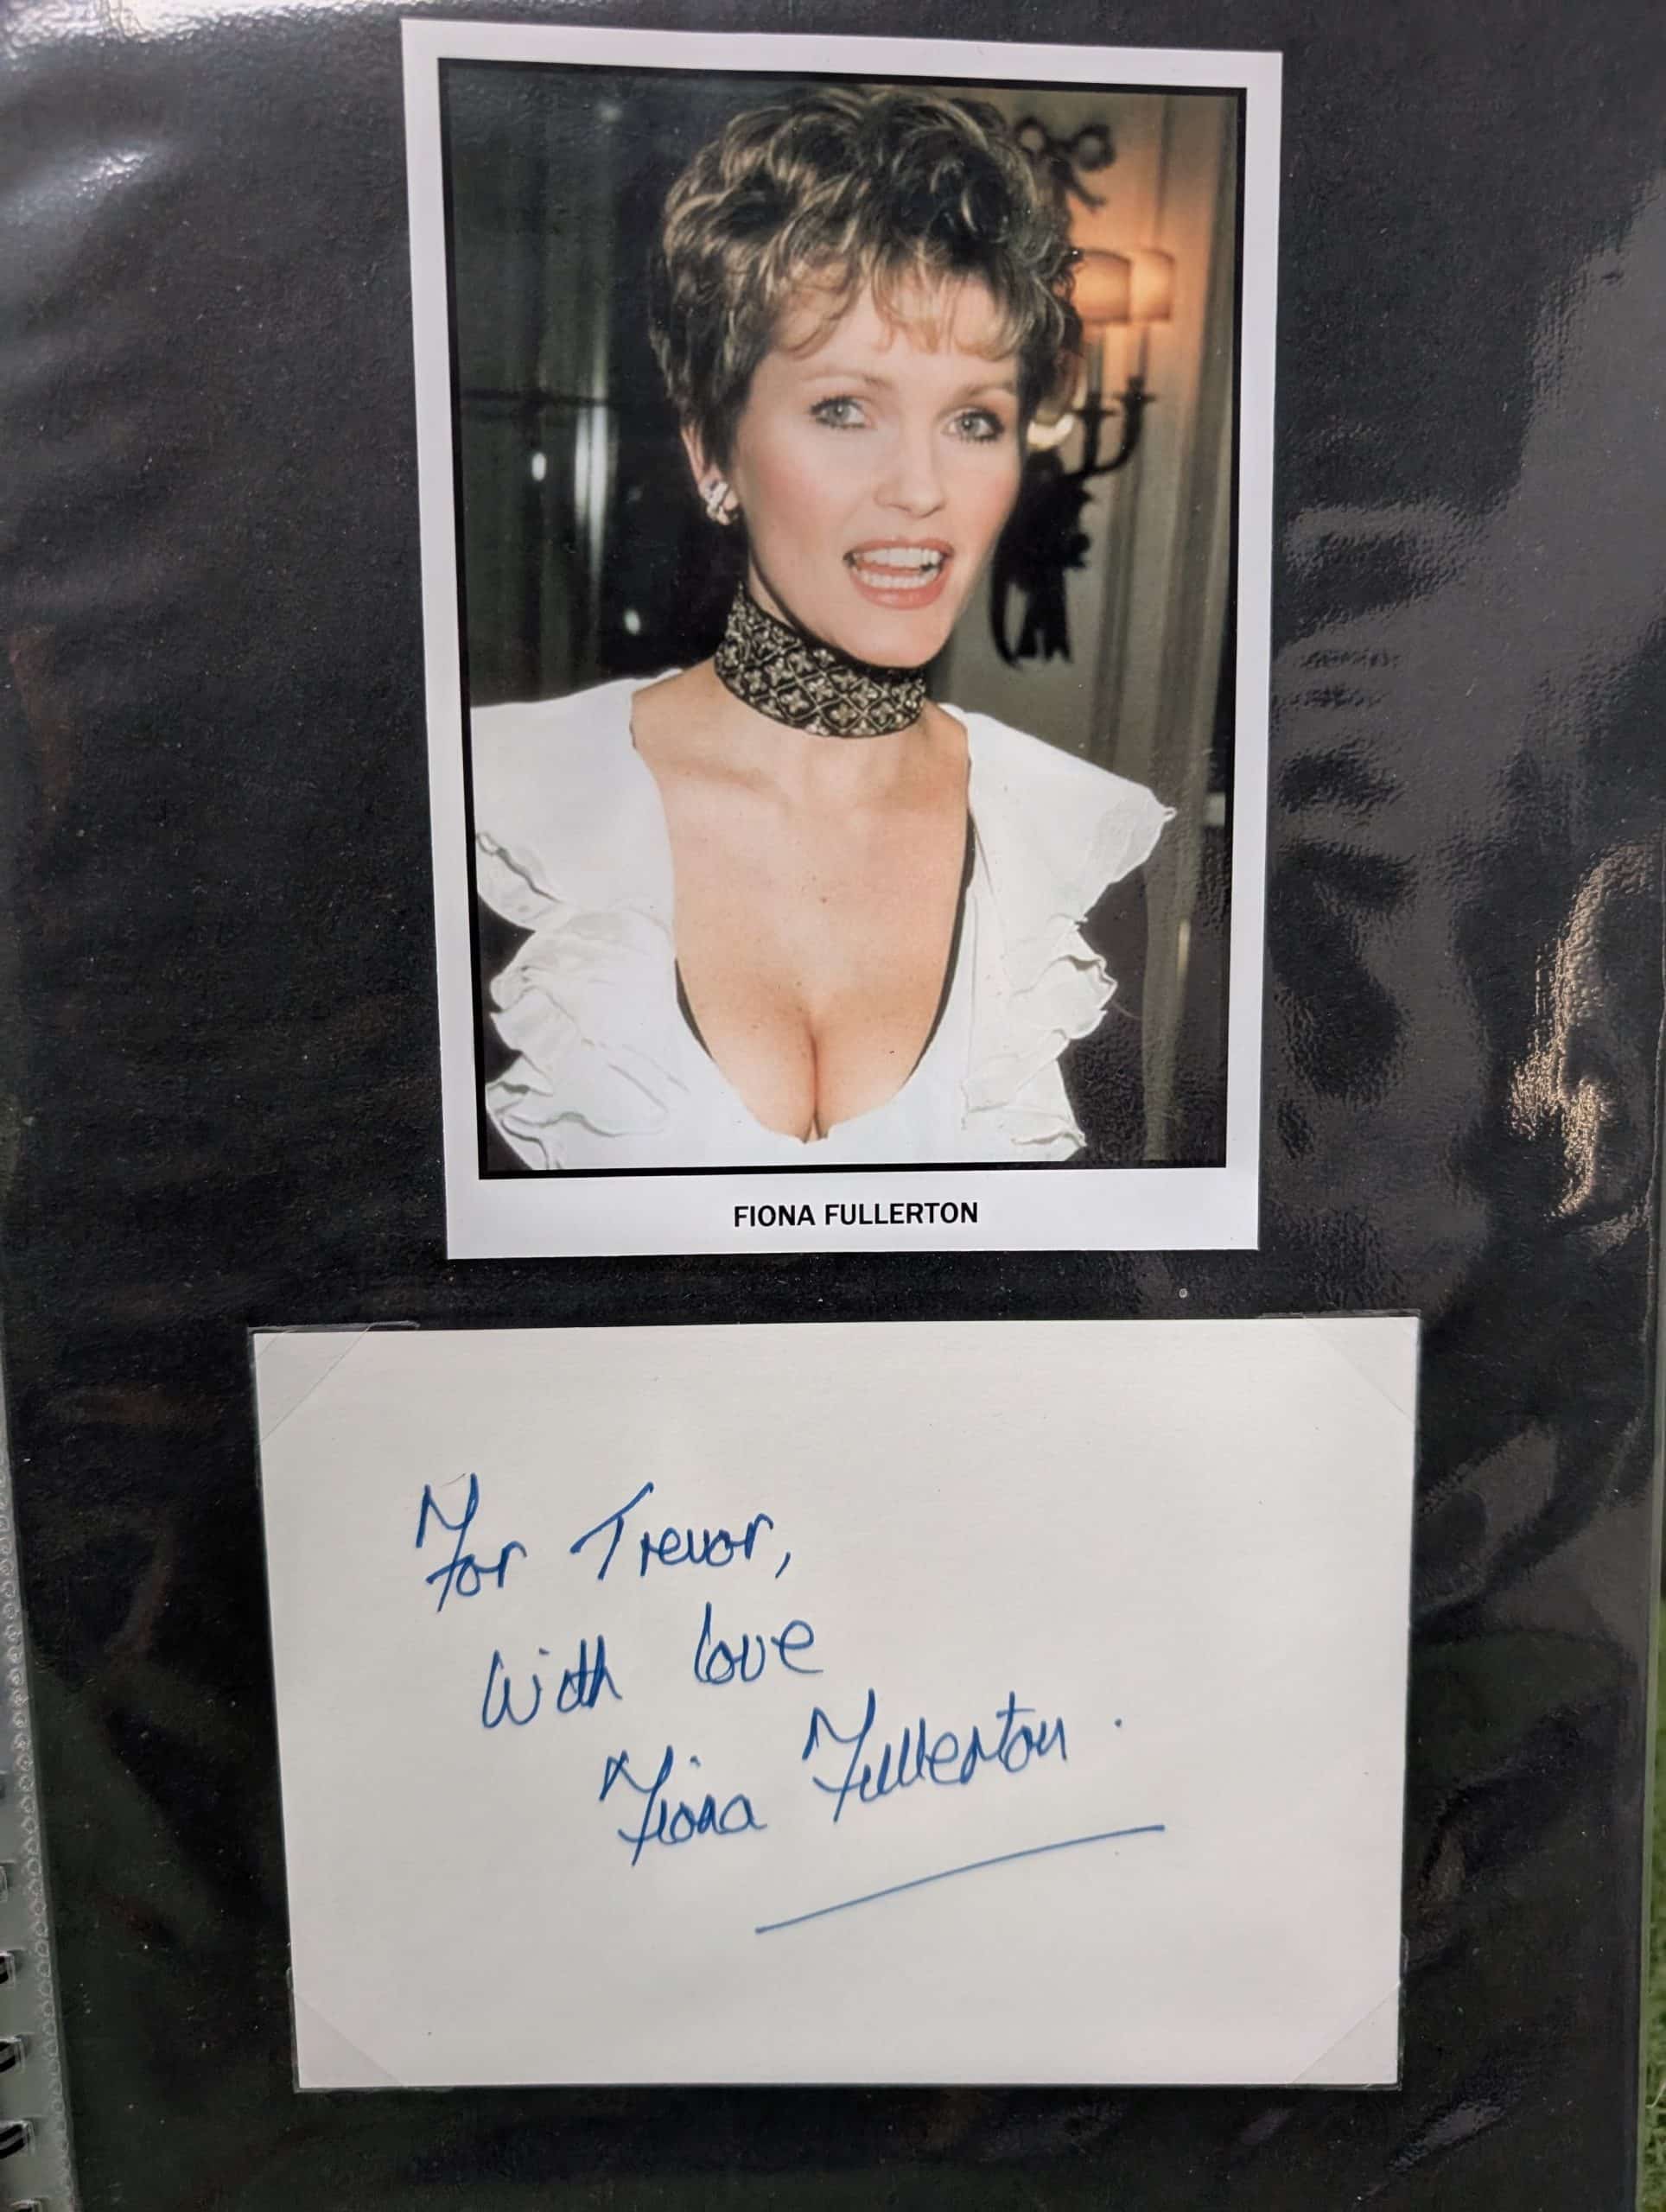 FIONA FULLERTON
For Trevor,
With love
Fiona Fullerton.